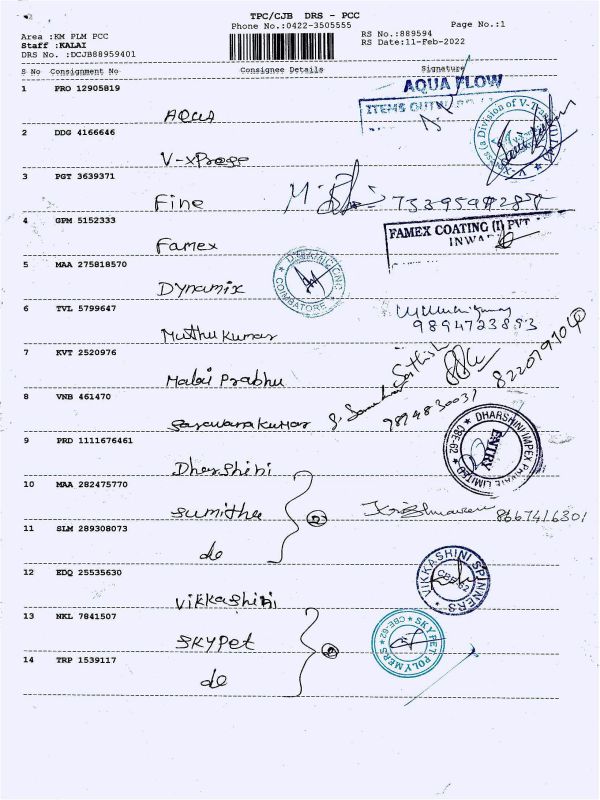 TPC/CJB DRS - PCC
Phone No.:0422-3505555
Page No.:1
Area :KM PLM PCC
RS No.:889594
Staff :KALAI
RS Date:11-Feb-2022
DRS No. :DCJB88959401
S No Consignment No Consignee Details Signature
1 PRO 12905819 Aqua AQUA FLOW
2 DDG 4166646 V-xpress
3 PGT 3639371 Fine
4 GPM 5152333 Famex FAMEX COATING (I) PVT
5 MAA 275818570 Dynamix COIMBATORE
6 TVL 5799647 Muthu Kumar 9894723893
7 KVT 2520976 Malai Prabhu
8 VNB 461470 Saravanakumar
9 PRD 1111676461 Dharshini DHARSHINI IMPEX PRIVATE LIMITED CBE-62 ENTRY
10 MAA 282475770 Sumithu 8667416301
11 SLM 289308073 do
12 EDQ 25535630 Vikkashini VIKKASHINI SPINNERS CBE-62
13 NKL 7841507 Skypet SKYPET POLYMERS CBE-62
14 TRP 1539117 do